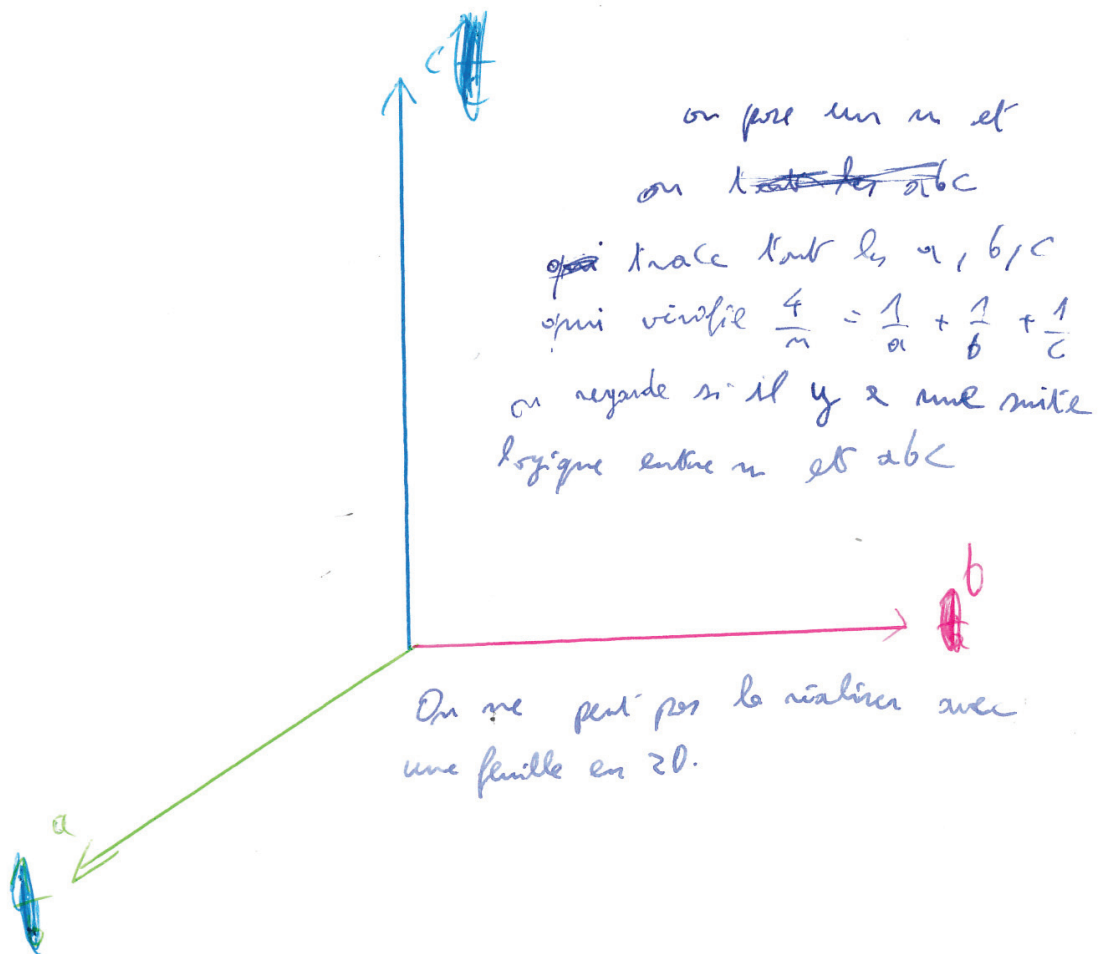 c
on pose un n et
on tout les abc
qui trace tout les a, b, c
qui vérifie 4/n = 1/a + 1/b + 1/c
on regarde si il y a une suite
logique entre n et abc
b
On ne peut pas le réaliser avec
une feuille en 2D.
a